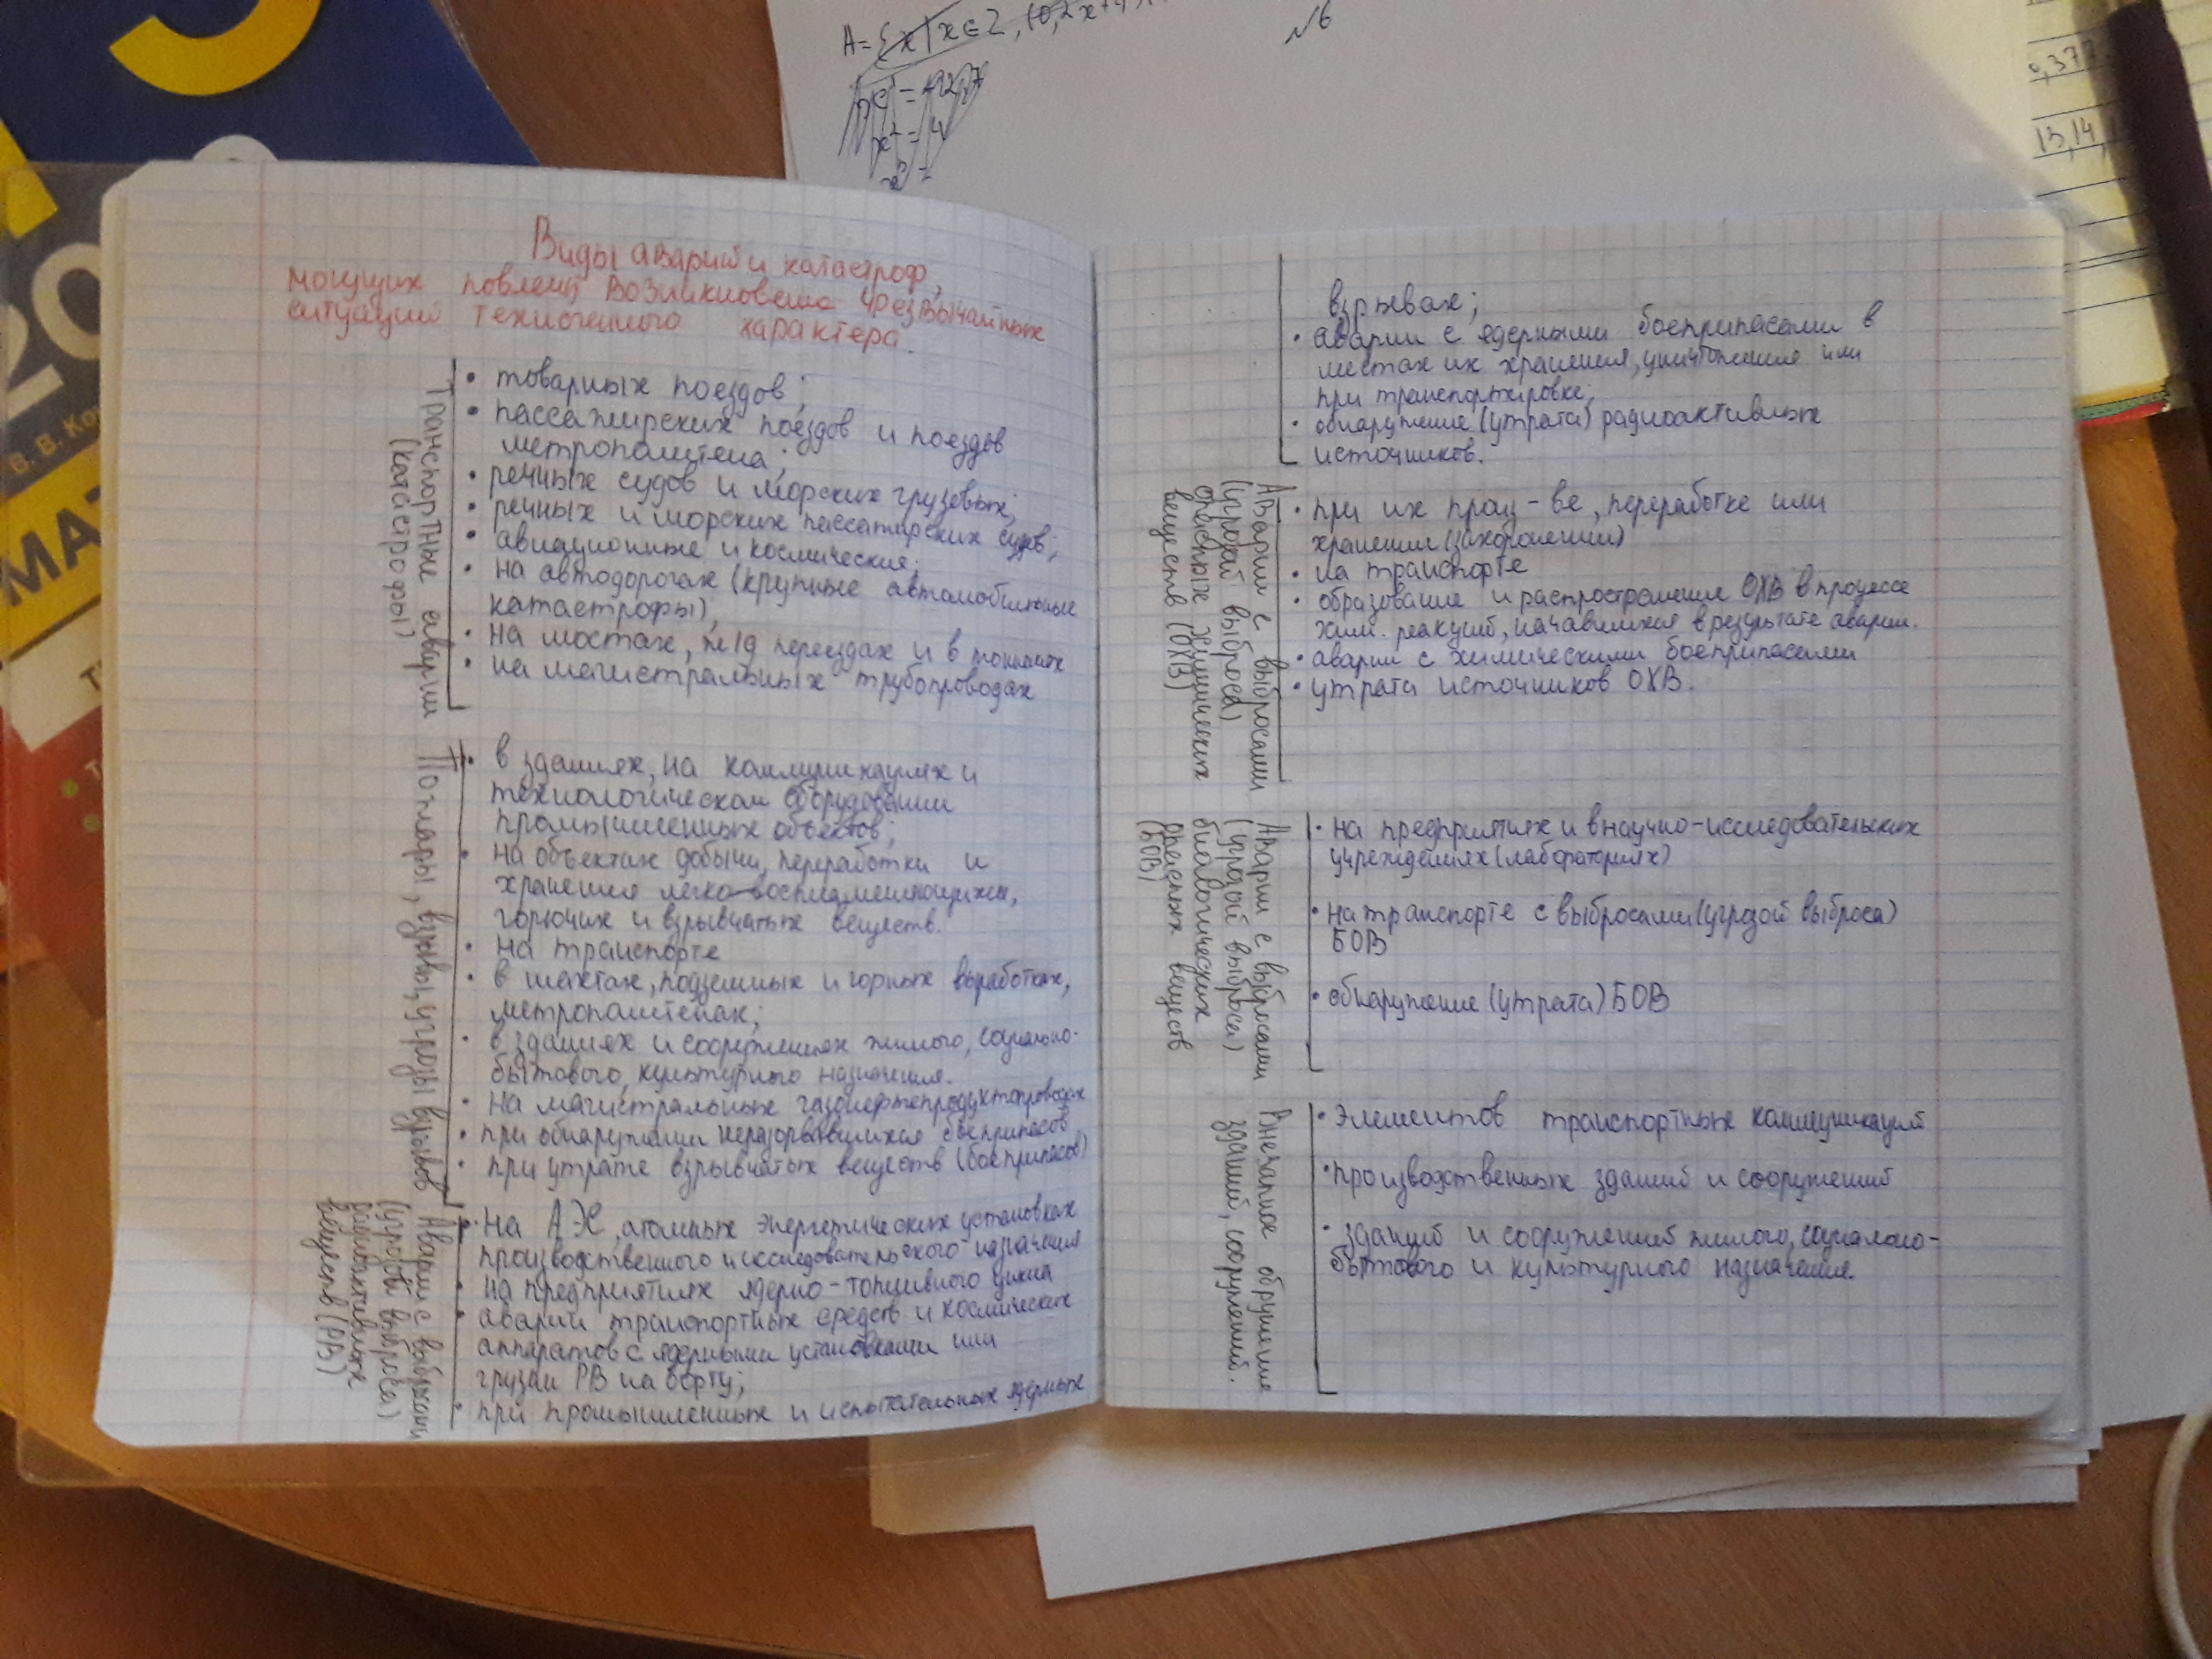 A = {x | x ∈ Z,
№6
0,377
13,14,
20
В. В. Ко
МАТ
Виды аварий и катастроф,
могущих повлечь возникновение чрезвычайных
ситуаций техногенного характера.
Транспортные аварии
(катастрофы)
• товарных поездов;
• пассажирских поездов и поездов
метрополитена;
• речных судов и морских грузовых;
• речных и морских пассажирских судов;
• авиационные и космические;
• на автодорогах (крупные автомобильные
катастрофы),
• на мостах, ж/д переездах и в тоннелях
• на магистральных трубопроводах
Пожары, взрывы, угрозы взрывов
• в зданиях, на коммуникациях и
технологическом оборудовании
промышленных объектов;
• на объектах добычи, переработки и
хранения легко воспламеняющихся,
горючих и взрывчатых веществ.
• на транспорте
• в шахтах, подземных и горных выработках,
метрополитенах;
• в зданиях и сооружениях жилого, социально-
бытового, культурного назначения.
• на магистральных газонефтепродуктопроводах
• при обнаружении неразорвавшихся боеприпасов
• при утрате взрывчатых веществ (боеприпасов)
Аварии с выбросами
(угрозой выброса)
радиоактивных
веществ (РВ)
• на АЭС, атомных энергетических установках
производственного и исследовательского назначения
• на предприятиях ядерно-топливного цикла
• аварии транспортных средств и космических
аппаратов с ядерными установками или
грузом РВ на борту;
• при промышленных и испытательных ядерных
взрывах;
• аварии с ядерными боеприпасами в
местах их хранения, уничтожения или
при транспортировке;
• обнаружение (утрата) радиоактивных
источников.
Аварии с выбросами
(угрозой выброса)
опасных химических
веществ (ОХВ)
• при их произ-ве, переработке или
хранении (захоронении)
• на транспорте
• образование и распространение ОХВ в процессе
хим. реакций, начавшихся в результате аварии.
• аварии с химическими боеприпасами
• утрата источников ОХВ.
Аварии с выбросами
(угрозой выброса)
биологических
опасных веществ
(БОВ)
• на предприятиях и в научно-исследовательских
учреждениях (лабораториях)
• на транспорте с выбросами (угрозой выброса)
БОВ
• обнаружение (утрата) БОВ
Внезапное обрушение
зданий, сооружений.
• Элементов транспортных коммуникаций
• производственных зданий и сооружений
• зданий и сооружений жилого, социально-
бытового и культурного назначения.